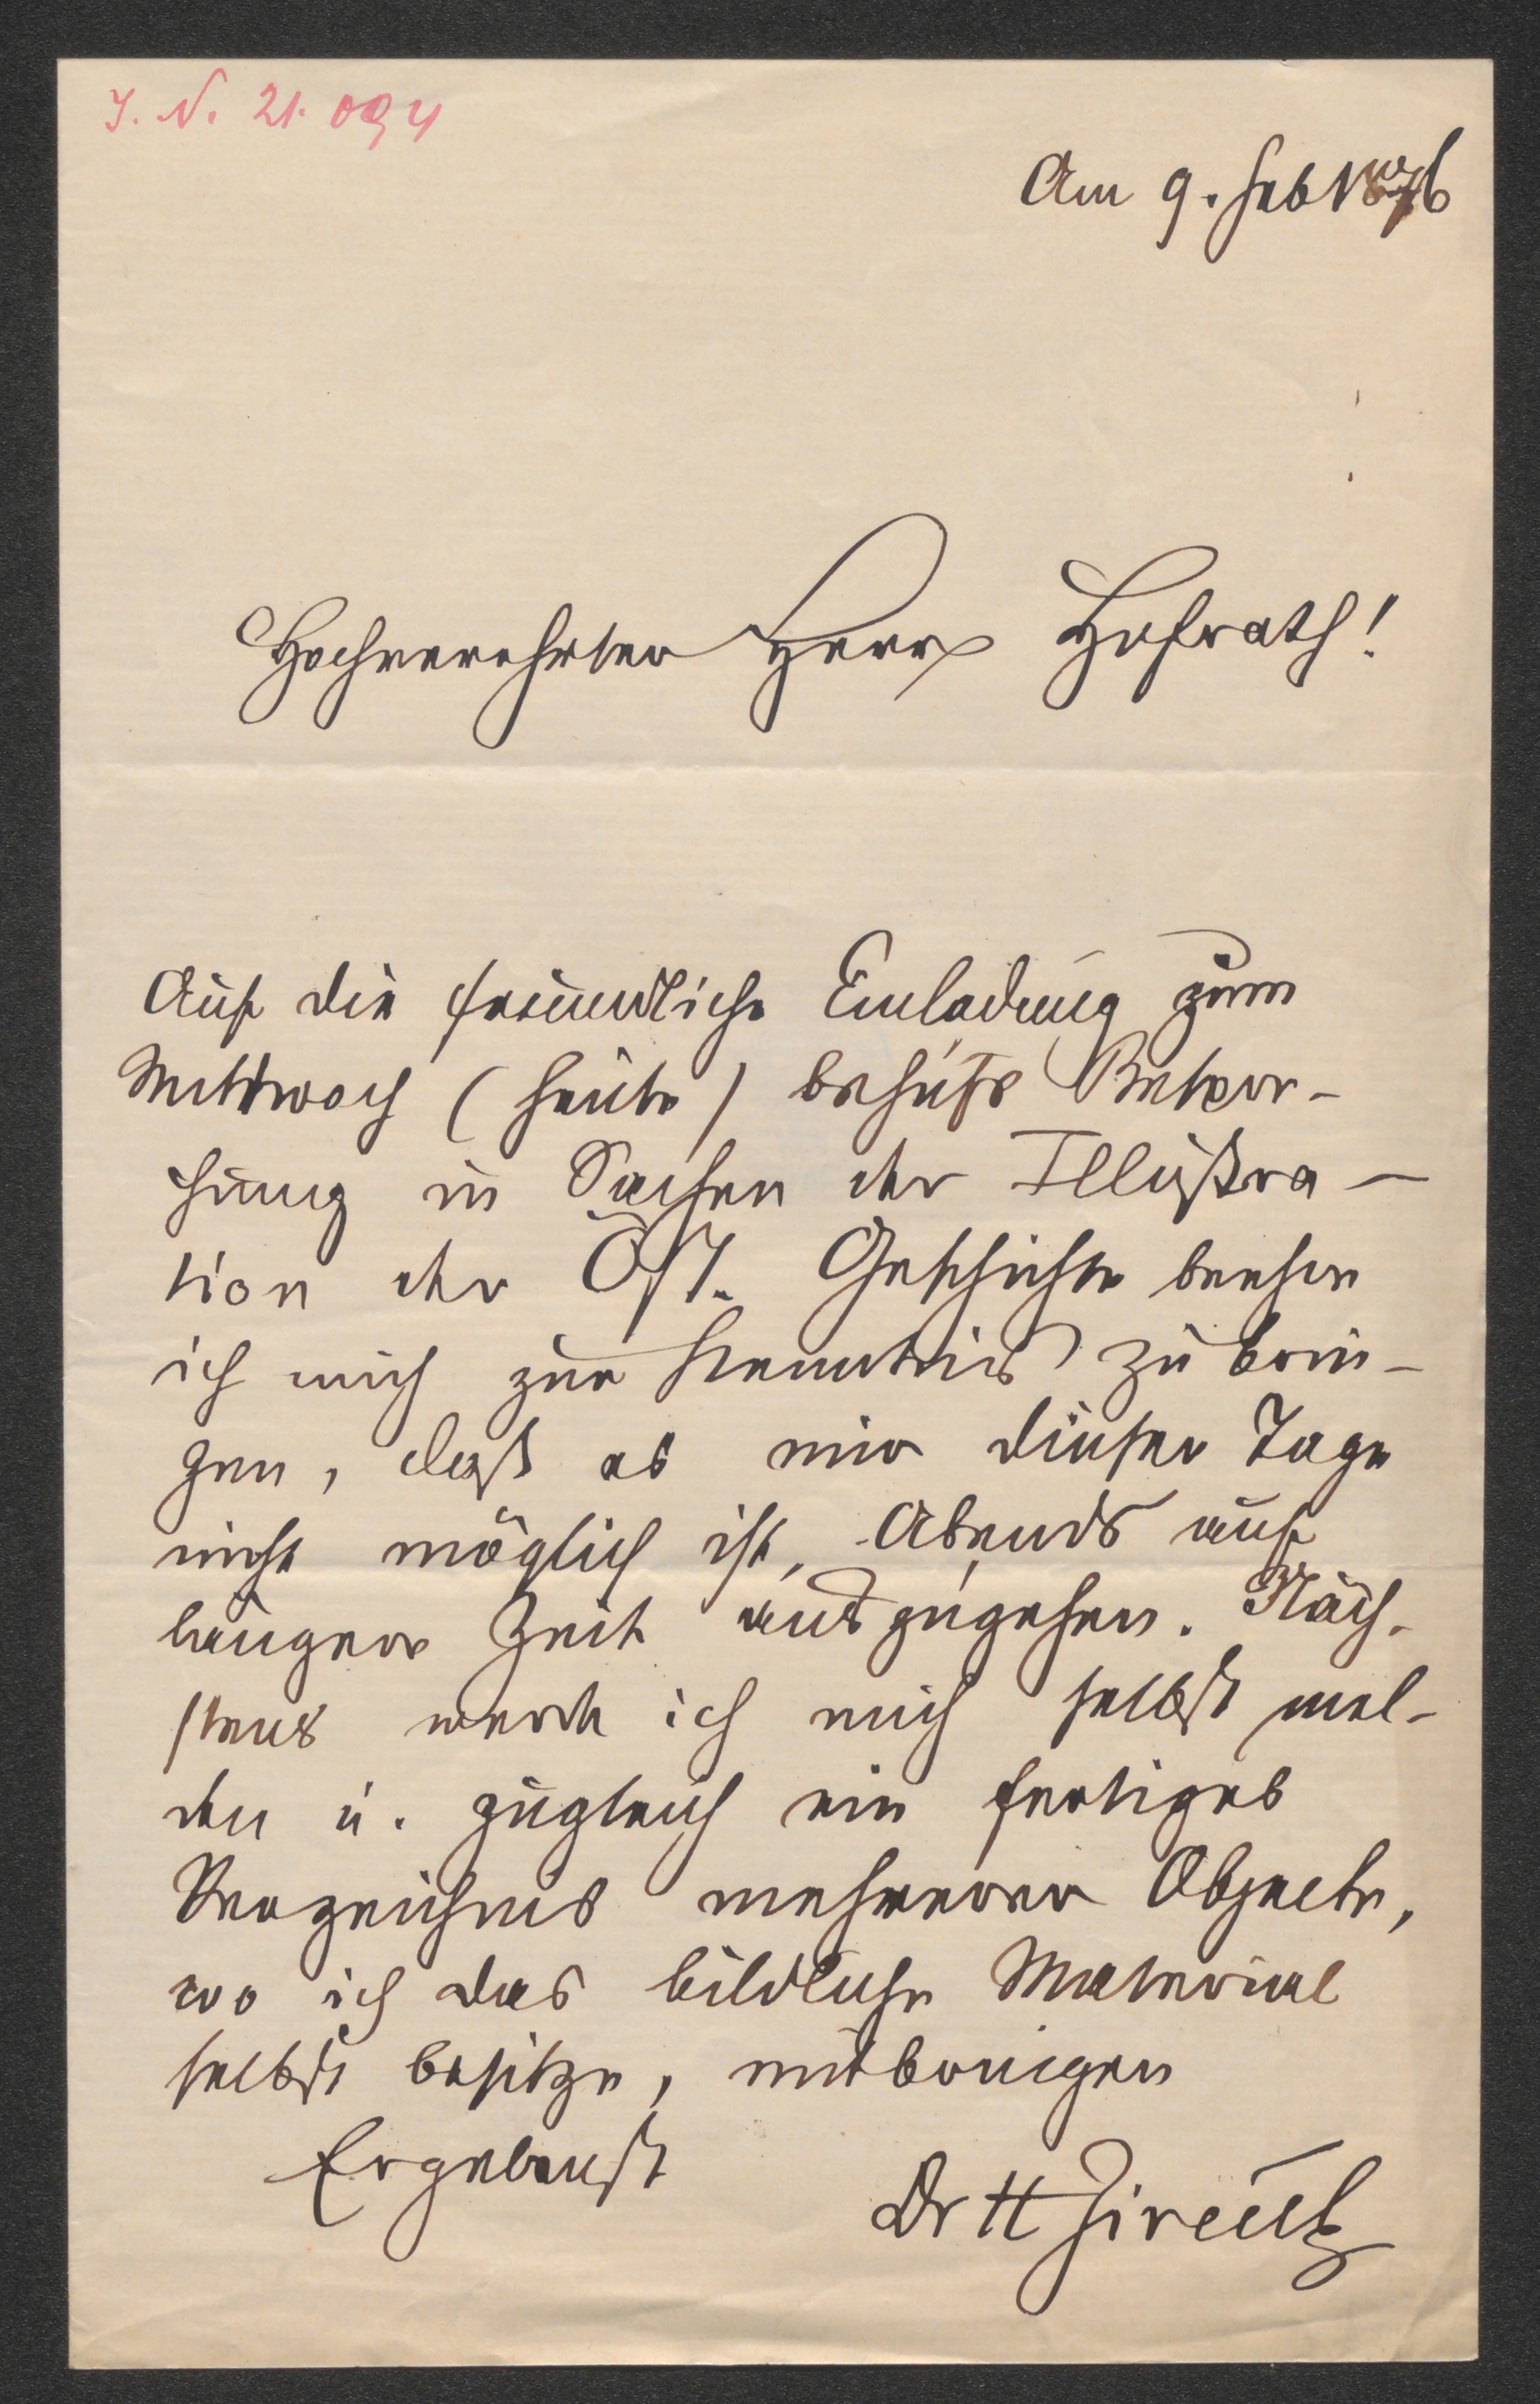 I. N. 21.094
Am 9. Feb 1876
Hochverehrter Herr Hofrath!
Auf die freundliche Einladung zum
Mittwoch (heute) behufs Bespre-
chung in Sachen der Illustra-
tion der Öst. Geschichte beehre
ich mich zur Kenntnis zu brin-
gen, daß es mir dieser Tage
nicht möglich ist, Abends auf
längere Zeit auszugehen. Näch-
stens werde ich mich selbst mel-
den u. zugleich ein fertiges
Verzeichnis mehrerer Objecte,
wo ich das bildliche Material
selbst besitze, mitbringen
Ergebenst
Dr H Jireček